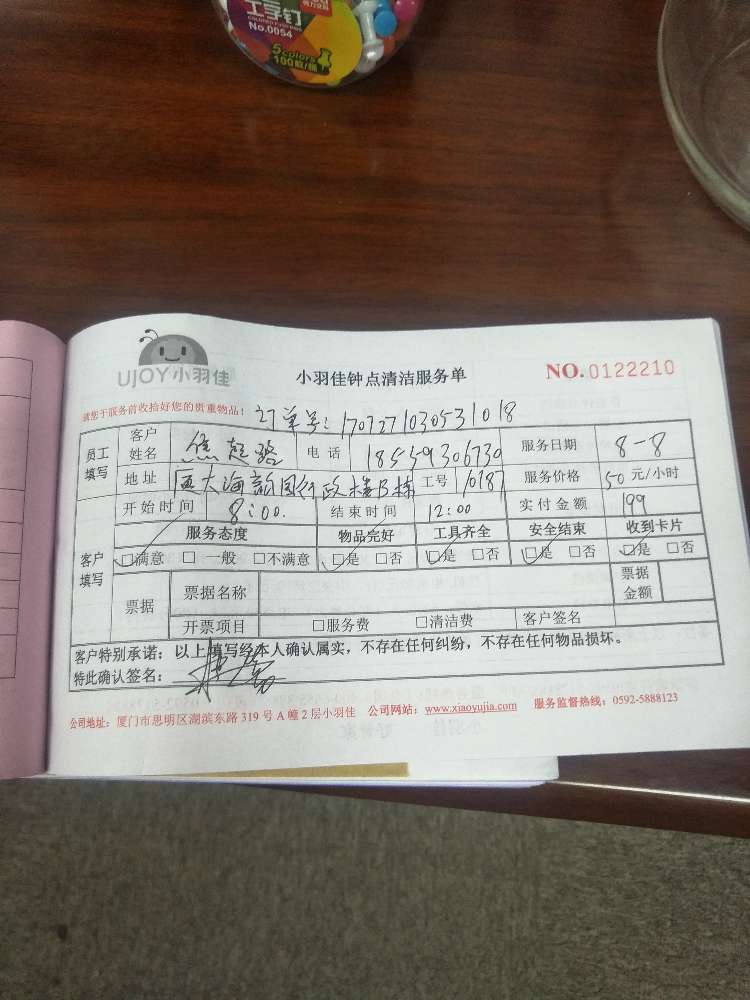 工字钉
No.0054
5 colors
100粒/瓶
UJOY小羽佳
小羽佳钟点清洁服务单
NO.0122210
请您于服务前收拾好您的贵重物品!
订单号:170727103053 1018
员工填写 客户姓名 焦 路 电话 18559306730 服务日期 8-8
地址 厦大海韵园行政楼B栋 工号 10187 服务价格 50元/小时
开始时间 8:00. 结束时间 12:00 实付金额 199
客户填写 服务态度 物品完好 工具齐全 安全结束 收到卡片
□满意 □一般 □不满意 □是 □否 □是 □否 □是 □否 □是 □否
票据 票据名称 票据金额
开票项目 □服务费 □清洁费 客户签名
客户特别承诺:以上填写经本人确认属实,不存在任何纠纷,不存在任何物品损坏。
特此确认签名:
公司地址:厦门市思明区湖滨东路319号A幢2层小羽佳 公司网站:www.xiaoyujia.com 服务监督热线:0592-5888123